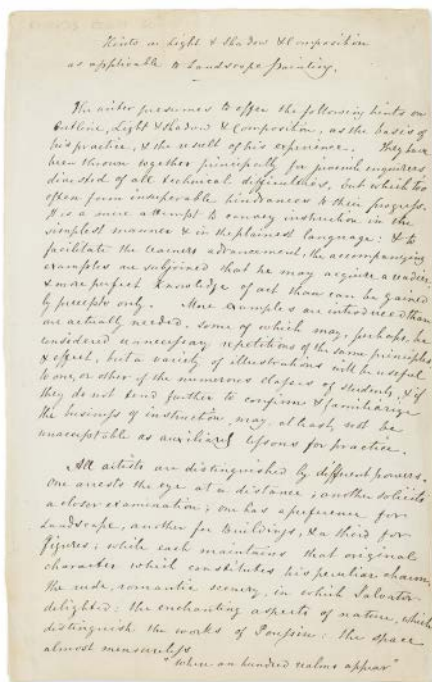 Hints on Light & Shadow & Composition
as applicable to Landscape Painting.
The writer presumes to offer the following hints on
Outline, Light & Shadow & Composition, as the basis of
his practice, & the result of his experience. They have
been thrown together principally for juvenile enquirers
divested of all technical difficulties, but which too
often form insuperable hindrances to their progress.
It is a mere attempt to convey instruction in the
simplest manner & in the plainest language: & to
facilitate the learners advancement, the accompanying
examples are subjoined that he may acquire a readier
& more perfect knowledge of art than can be gained
by precepts only. More examples are introduced than
are actually needed, some of which may, perhaps, be
considered unnecessary repetitions of the same principles
& effect, but a variety of illustrations will be useful
to one, or other of the numerous classes of students, & if
they do not tend further to confirm & familiarize
the business of instruction, may, at least, not be
unacceptable as auxiliary lessons for practice.
All artists are distinguished by different powers.
One arrests the eye at a distance; another solicits
a closer examination; one has a preference for
Landscape, another for Buildings, & a third for
Figures; while each maintains that original
character which constitutes his peculiar charm,
the rude, romantic scenery, in which Salvator
delighted: the enchanting aspects of nature, which
distinguish the works of Poussin: the space
almost measureless
"where an hundred realms appear"